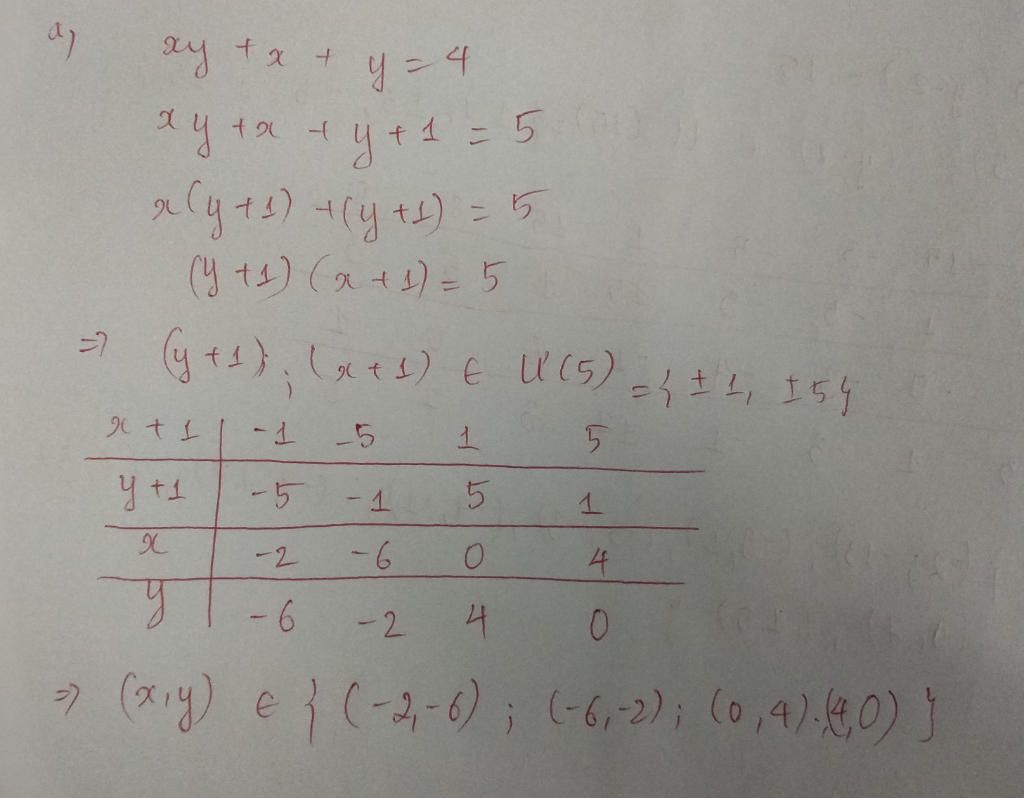 a, xy + x + y = 4
xy + x + y + 1 = 5
x(y+1) + (y+1) = 5
(y+1)(x+1) = 5
=> (y+1); (x+1) ∈ Ư(5) = {±1, ±5}
x+1 | -1 -5 1 5
y+1 | -5 -1 5 1
x | -2 -6 0 4
y | -6 -2 4 0
=> (x,y) ∈ { (-2,-6); (-6,-2); (0,4); (4,0) }